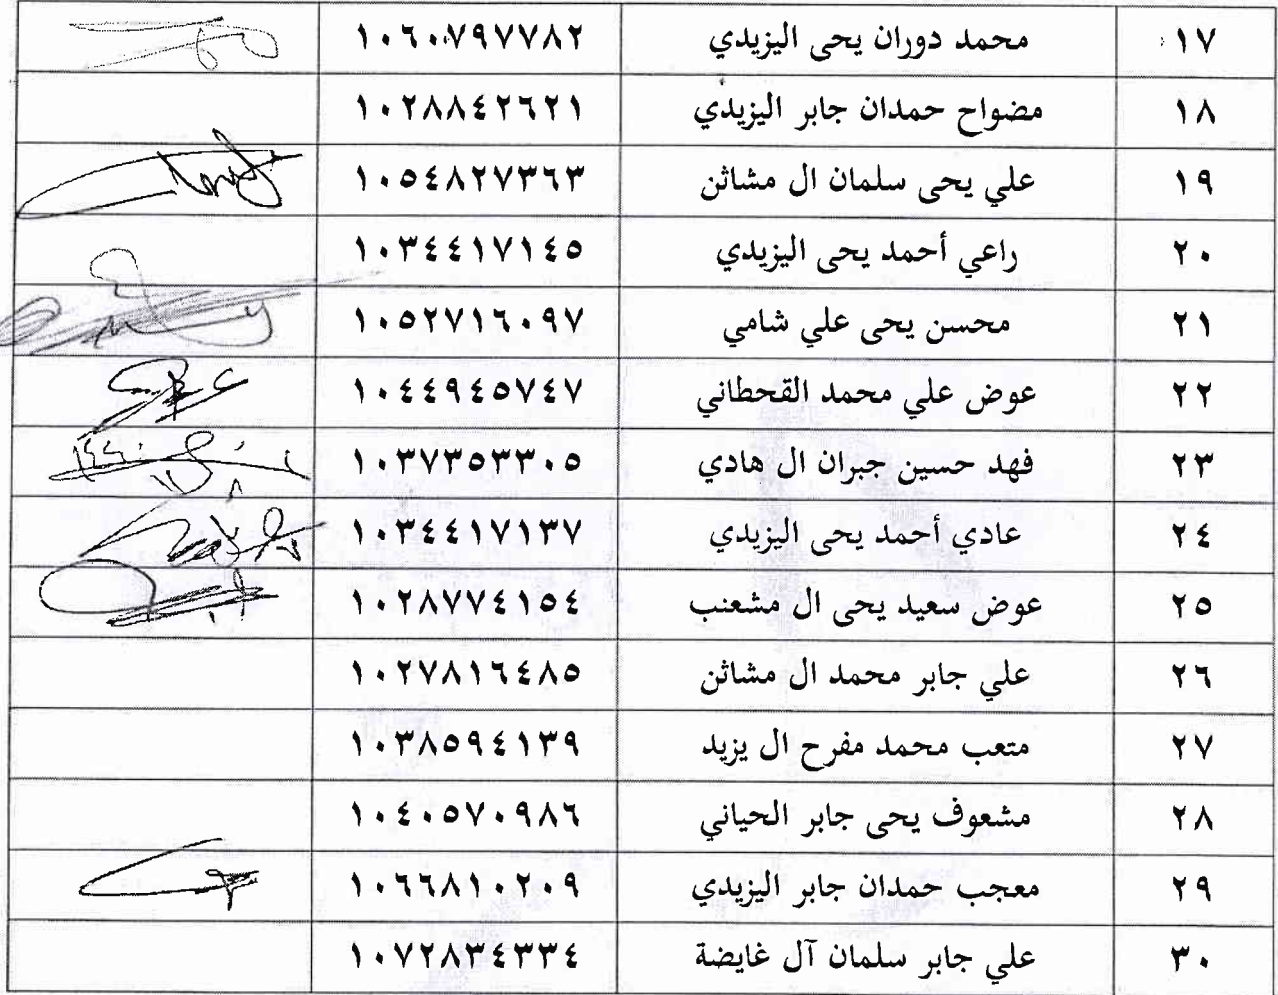 ١٧ محمد دوران يحى اليزيدي ١٠٦٠٧٩٧٧٨٢
١٨ مضواح حمدان جابر اليزيدي ١٠٢٨٨٤٢٦٢١
١٩ علي يحى سلمان ال مشاثن ١٠٥٤٨٢٧٣٦٣
٢٠ راعي أحمد يحى اليزيدي ١٠٣٤٤١٧١٤٥
٢١ محسن يحى علي شامي ١٠٥٢٧١٦٠٩٧
٢٢ عوض علي محمد القحطاني ١٠٤٤٩٤٥٧٤٧
٢٣ فهد حسين جبران ال هادي ١٠٣٧٣٥٣٣٠٥
٢٤ عادي أحمد يحى اليزيدي ١٠٣٤٤١٧١٣٧
٢٥ عوض سعيد يحى ال مشعنب ١٠٢٨٧٧٤١٥٤
٢٦ علي جابر محمد ال مشاثن ١٠٢٧٨١٦٤٨٥
٢٧ متعب محمد مفرح ال يزيد ١٠٣٨٥٩٤١٣٩
٢٨ مشعوف يحى جابر الحياني ١٠٤٠٥٧٠٩٨٦
٢٩ معجب حمدان جابر اليزيدي ١٠٦٦٨١٠٢٠٩
٣٠ علي جابر سلمان آل غايضة ١٠٧٢٨٣٤٣٣٤